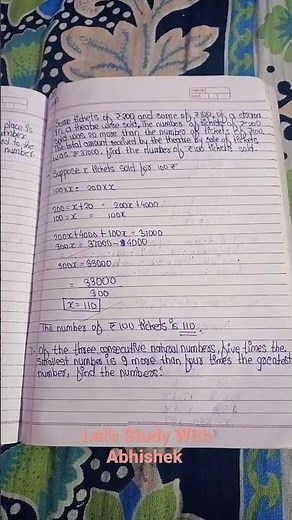 place is
number
ed to the
number
Some tickets of ₹200 and some of ₹100, of a drama
in a theatre were sold. The number of tickets of ₹200
sold was 20 more than the number of tickets of ₹100.
The total amount received by the theatre by sale of tickets
was ₹37000. Find the number of ₹100 tickets sold.
Suppose x tickets sold for 100 ₹
100×x = 200×x
200 = x+20 = 200x + 4000
100 = x = 100x
200x + 4000 + 100x = 37000
300x = 37000 - 4000
300x = 33000
= 33000
300
x = 110
The number of ₹100 tickets is 110.
7- Of the three consecutive natural numbers, five times the
smallest number is 9 more than four times the greatest
number, find the numbers.
Let's Study With
Abhishek